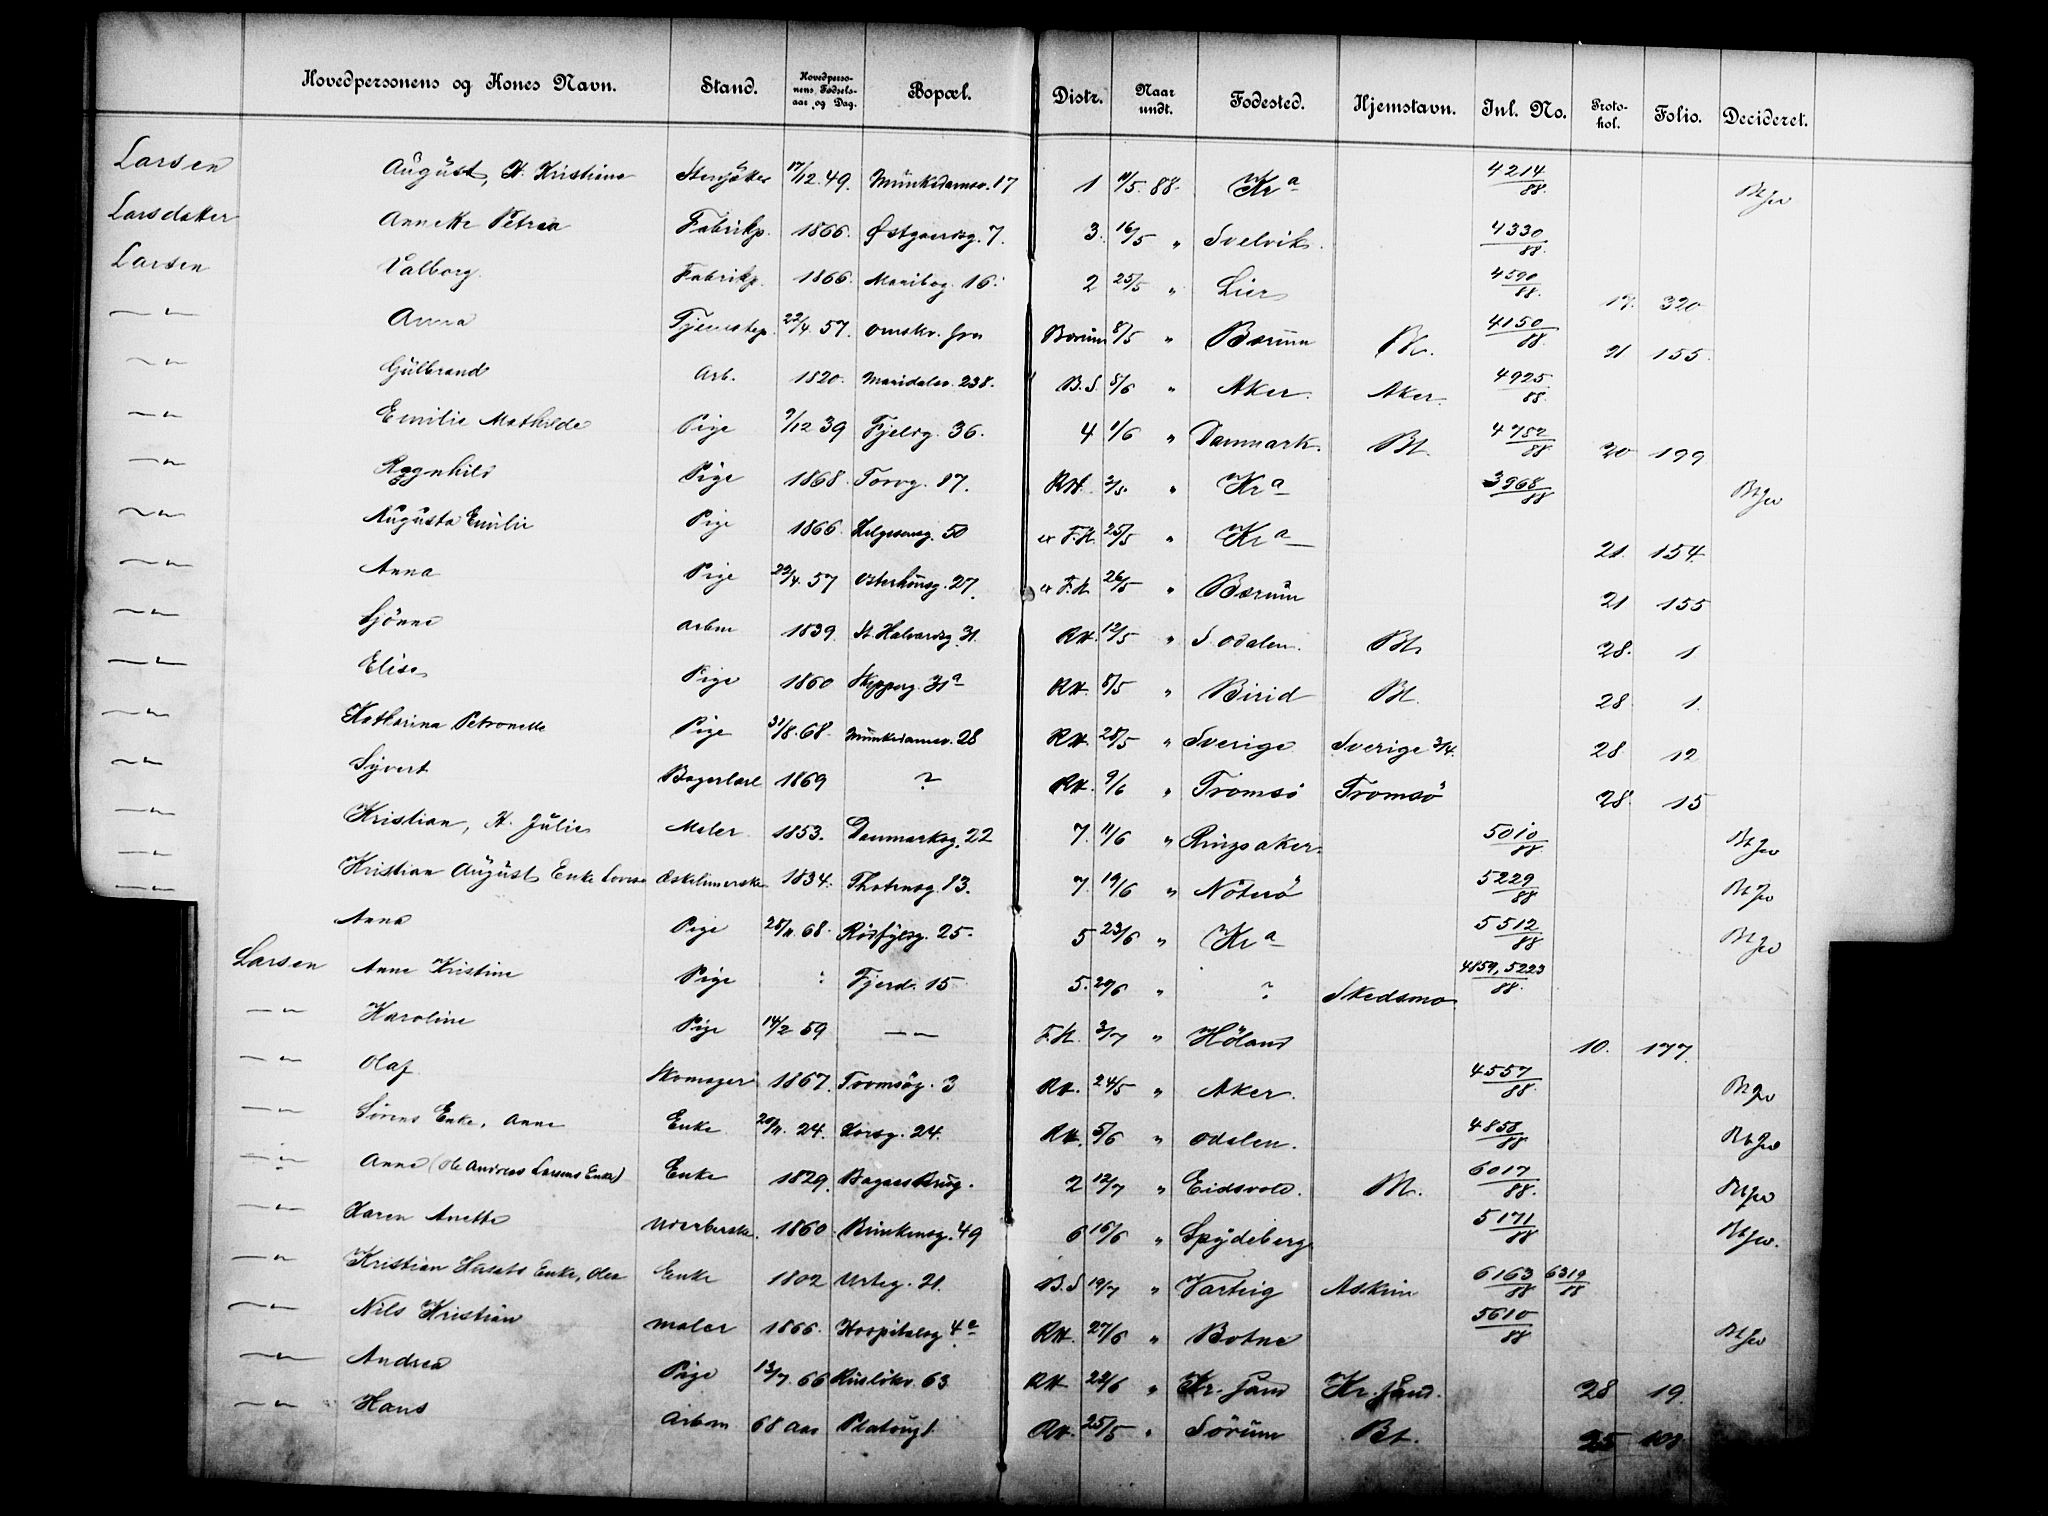 Hovedpersonens og Kones Navn. Stand. Hovedpersonens Fødselsaar og Dag. Bopæl. Distr. Naar undt. Fødested. Hjemstavn. Inl. No. Protokol. Folio. Decideret.
Larsen August, H. Kristiane 17/12.49. Munkedamsv. 17 1 11/5 88. Kra 4214/88.
Larsdatter Annette Petrea Fabrikp. 1866. Østgaardsg. 7. 3. 16/5 " Svelvik. 4330/88.
Larsen Valborg. Fabrikp. 1866. Maribog. 16. 2 25/5 " Lier 4590/88. 17. 320
—"— Anna Tjenestep. 22/4. 57. omskr. fra Bærum 8/5 " Bærum Bt. 4150/88. 21 155.
—"— Gulbrand Arb. 1820. Maridalsv. 238. B.S. 5/6 " Aker. Aker. 4925/88.
—"— Emilie Mathilde Pige 9/12 39 Fjeldg. 36. 4 1/6 " Danmark. Bt. 4782/88 20 199
—"— Ragnhild Pige 1868. Torvg. 17. RH. 2/5. " Kra 3968/88
—"— Augusta Emilie Pige 1866. Helgesensg. 50 F.H. 25/5 " Kra 21. 154.
—"— Anna Pige 22/4. 57 Osterhausg. 27. F.H. 26/5 " Bærum 21 155
—"— Gjönne Arbm 1839. St. Halvardsg. 31. RH. 12/5 " S. Odalen. Bt. 28. 1.
—"— Elise Pige 1860 Skipperg. 31a RH. 8/5 " Birid Bt. 28. 1.
—"— Katharina Petronelle Pige 31/8. 68. Munkedamsv. 28 RH. 28/5 " Sverige Sverige 3/4. 28 12
—"— Syvert Bagerlærl 1869 ? RH. 9/6 " Tromsö Tromsö 28. 15
—"— Kristian, H. Julie Maler. 1853. Danmarksg. 22 7. 11/6 " Ringsaker. 5010/88.
—"— Kristian August Enke Lovise Æskelimerske 1834. Thorensg. 13. 7. 19/6 " Nöterö 5229/88
—"— Anna Pige 25/11. 68. Rødfyldg. 25. 5 23/6 " Kra 5512/88
Larsen Anne Kristine Pige : Fjerd. 15 5. 20/6 " ? Skedsmo. 4859, 5223/88.
—"— Karoline Pige 14/2 59 —"— F.H. 3/7 " Höland 10. 177.
—"— Olaf Skomager 1867. Tromsög. 3 RH. 24/5 " Aker. 4557/88.
—"— Sørens Enke, Anne Enke 20/11. 24. Korsg. 24. RH. 5/6 " Odalen. 4858/88
—"— Anne (Ole Andreas Larsens Enke) Enke 1829. 2 12/7 " Eidsvold. Bt. 6017/88.
—"— Karen Anette 1860. Brinkensg. 49 6 16/6 " Spydeberg 5171/88
—"— Kristian Enke, Olea Enke 1802 Urteg. 21. B.S 19/7 " Varteig Askim 6163/88 6319/88
—"— Nils Kristian Maler 1866. Hospitalsg 4a RH. 27/6 " Botne 5610/88
—"— Andrea Pige 13/7. 66 Ruslökv. 63 RH 22/6 " Kr. sand Kr. sand. 28 19.
—"— Hans Arbm 68 Aar Platoug1 RH. 25/5 " Sörum Bt. 25 108.